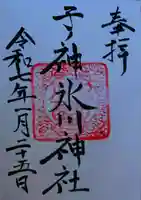 奉拝
子神氷川神社
令和七年一月二十五日